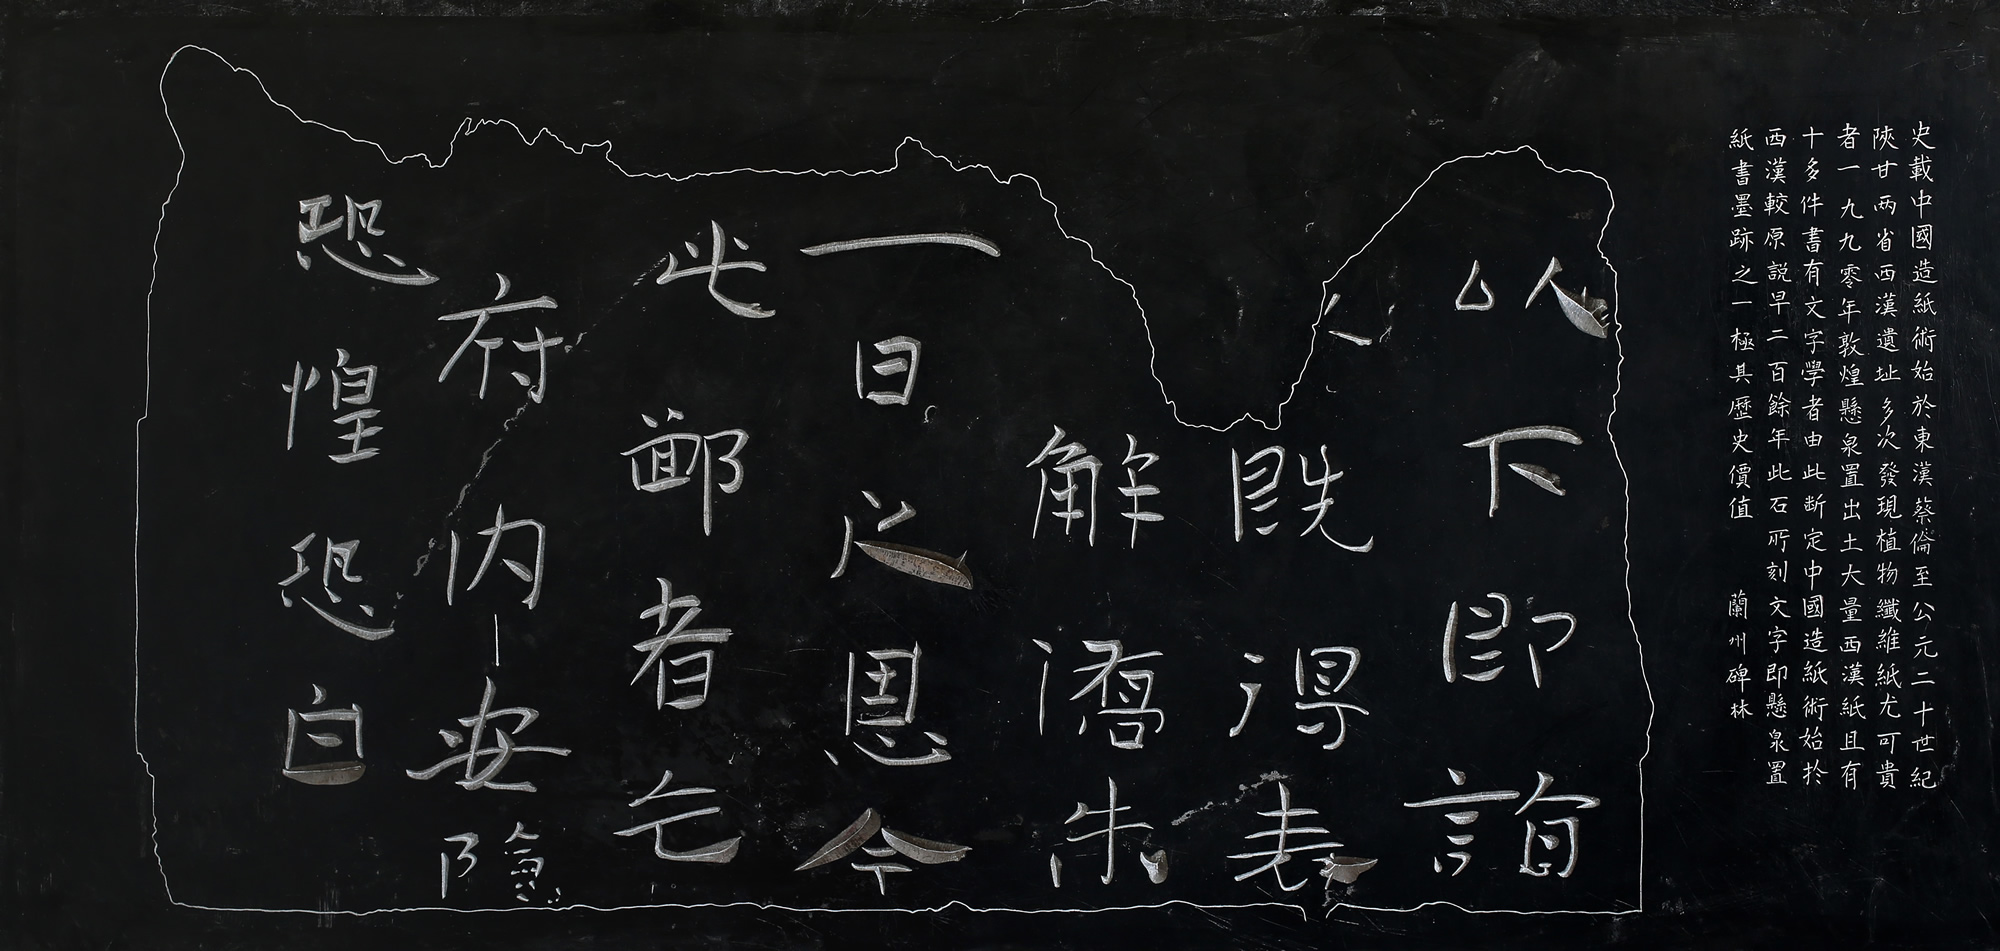 史載中國造紙術始於東漢蔡倫至公元二十世紀
陝甘两省西漢遺址多次發現植物纖維紙尤可貴
者一九九零年敦煌懸泉置出土大量西漢紙且有
十多件書有文字學者由此断定中國造紙術始於
西漢較原説早二百餘年此石所刻文字即懸泉置
紙書墨跡之一極其歷史價值 蘭州碑林
以下即
既得表
解
一日之恩今
此鄙者
府内安隐
恐惶恐白